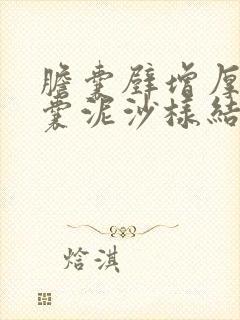 膽囊壁增厚
囊泥沙樣結
焓淇